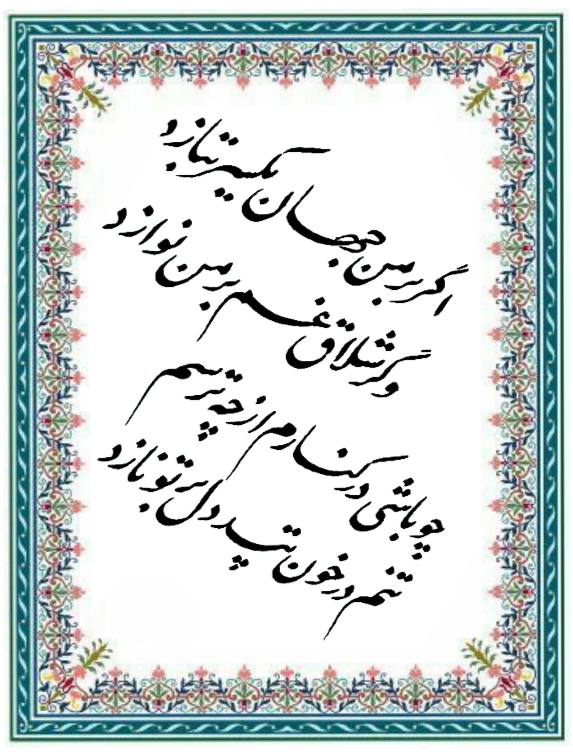 اگر بر من جهان یکسر بتازد
وگر شلاق غم بر من نوازد
چو باشی در کنارم از چه ترسم
تنم در خون تپد دل بر تو نازد